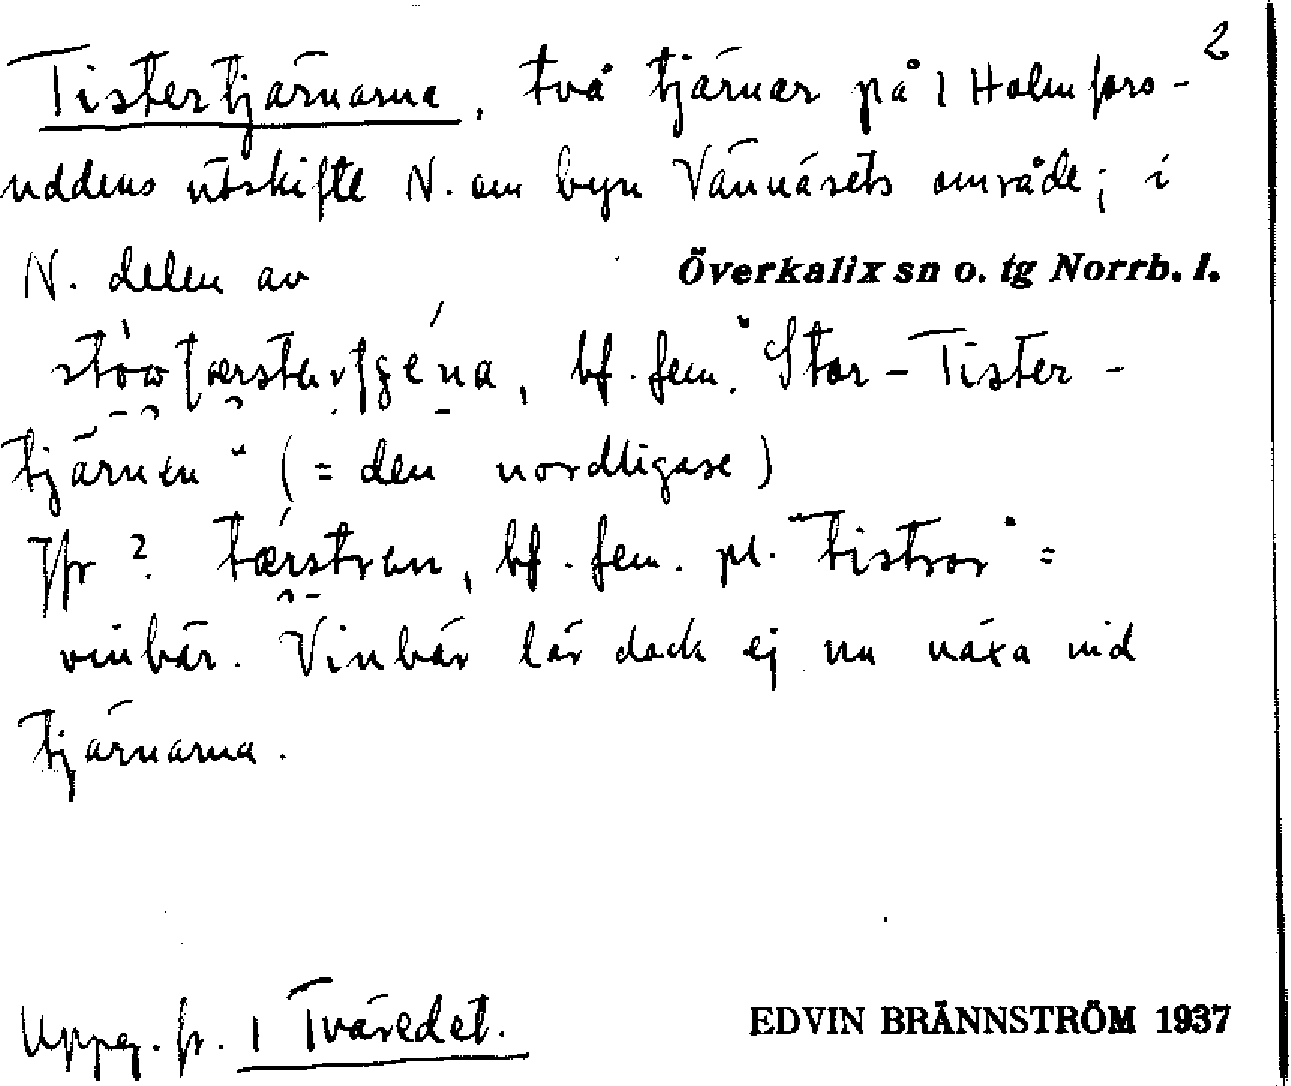 2
Tistertjärnarna, två tjärnar på 1 Holmfors-
uddens utskifte N. om byn Vännäsets område; i
N. delen av Överkalix sn o. tg Norrb. l.
bf. fem. "Stor-Tister-
tjärnen" (= den nordligase)
Jfr? tærstran, bf. fem. pl. "tistror" =
vinbär. Vinbär lär dock ej nu växa vid
tjärnarna.
Uppg. fr. 1 Tväredet. EDVIN BRÄNNSTRÖM 1937